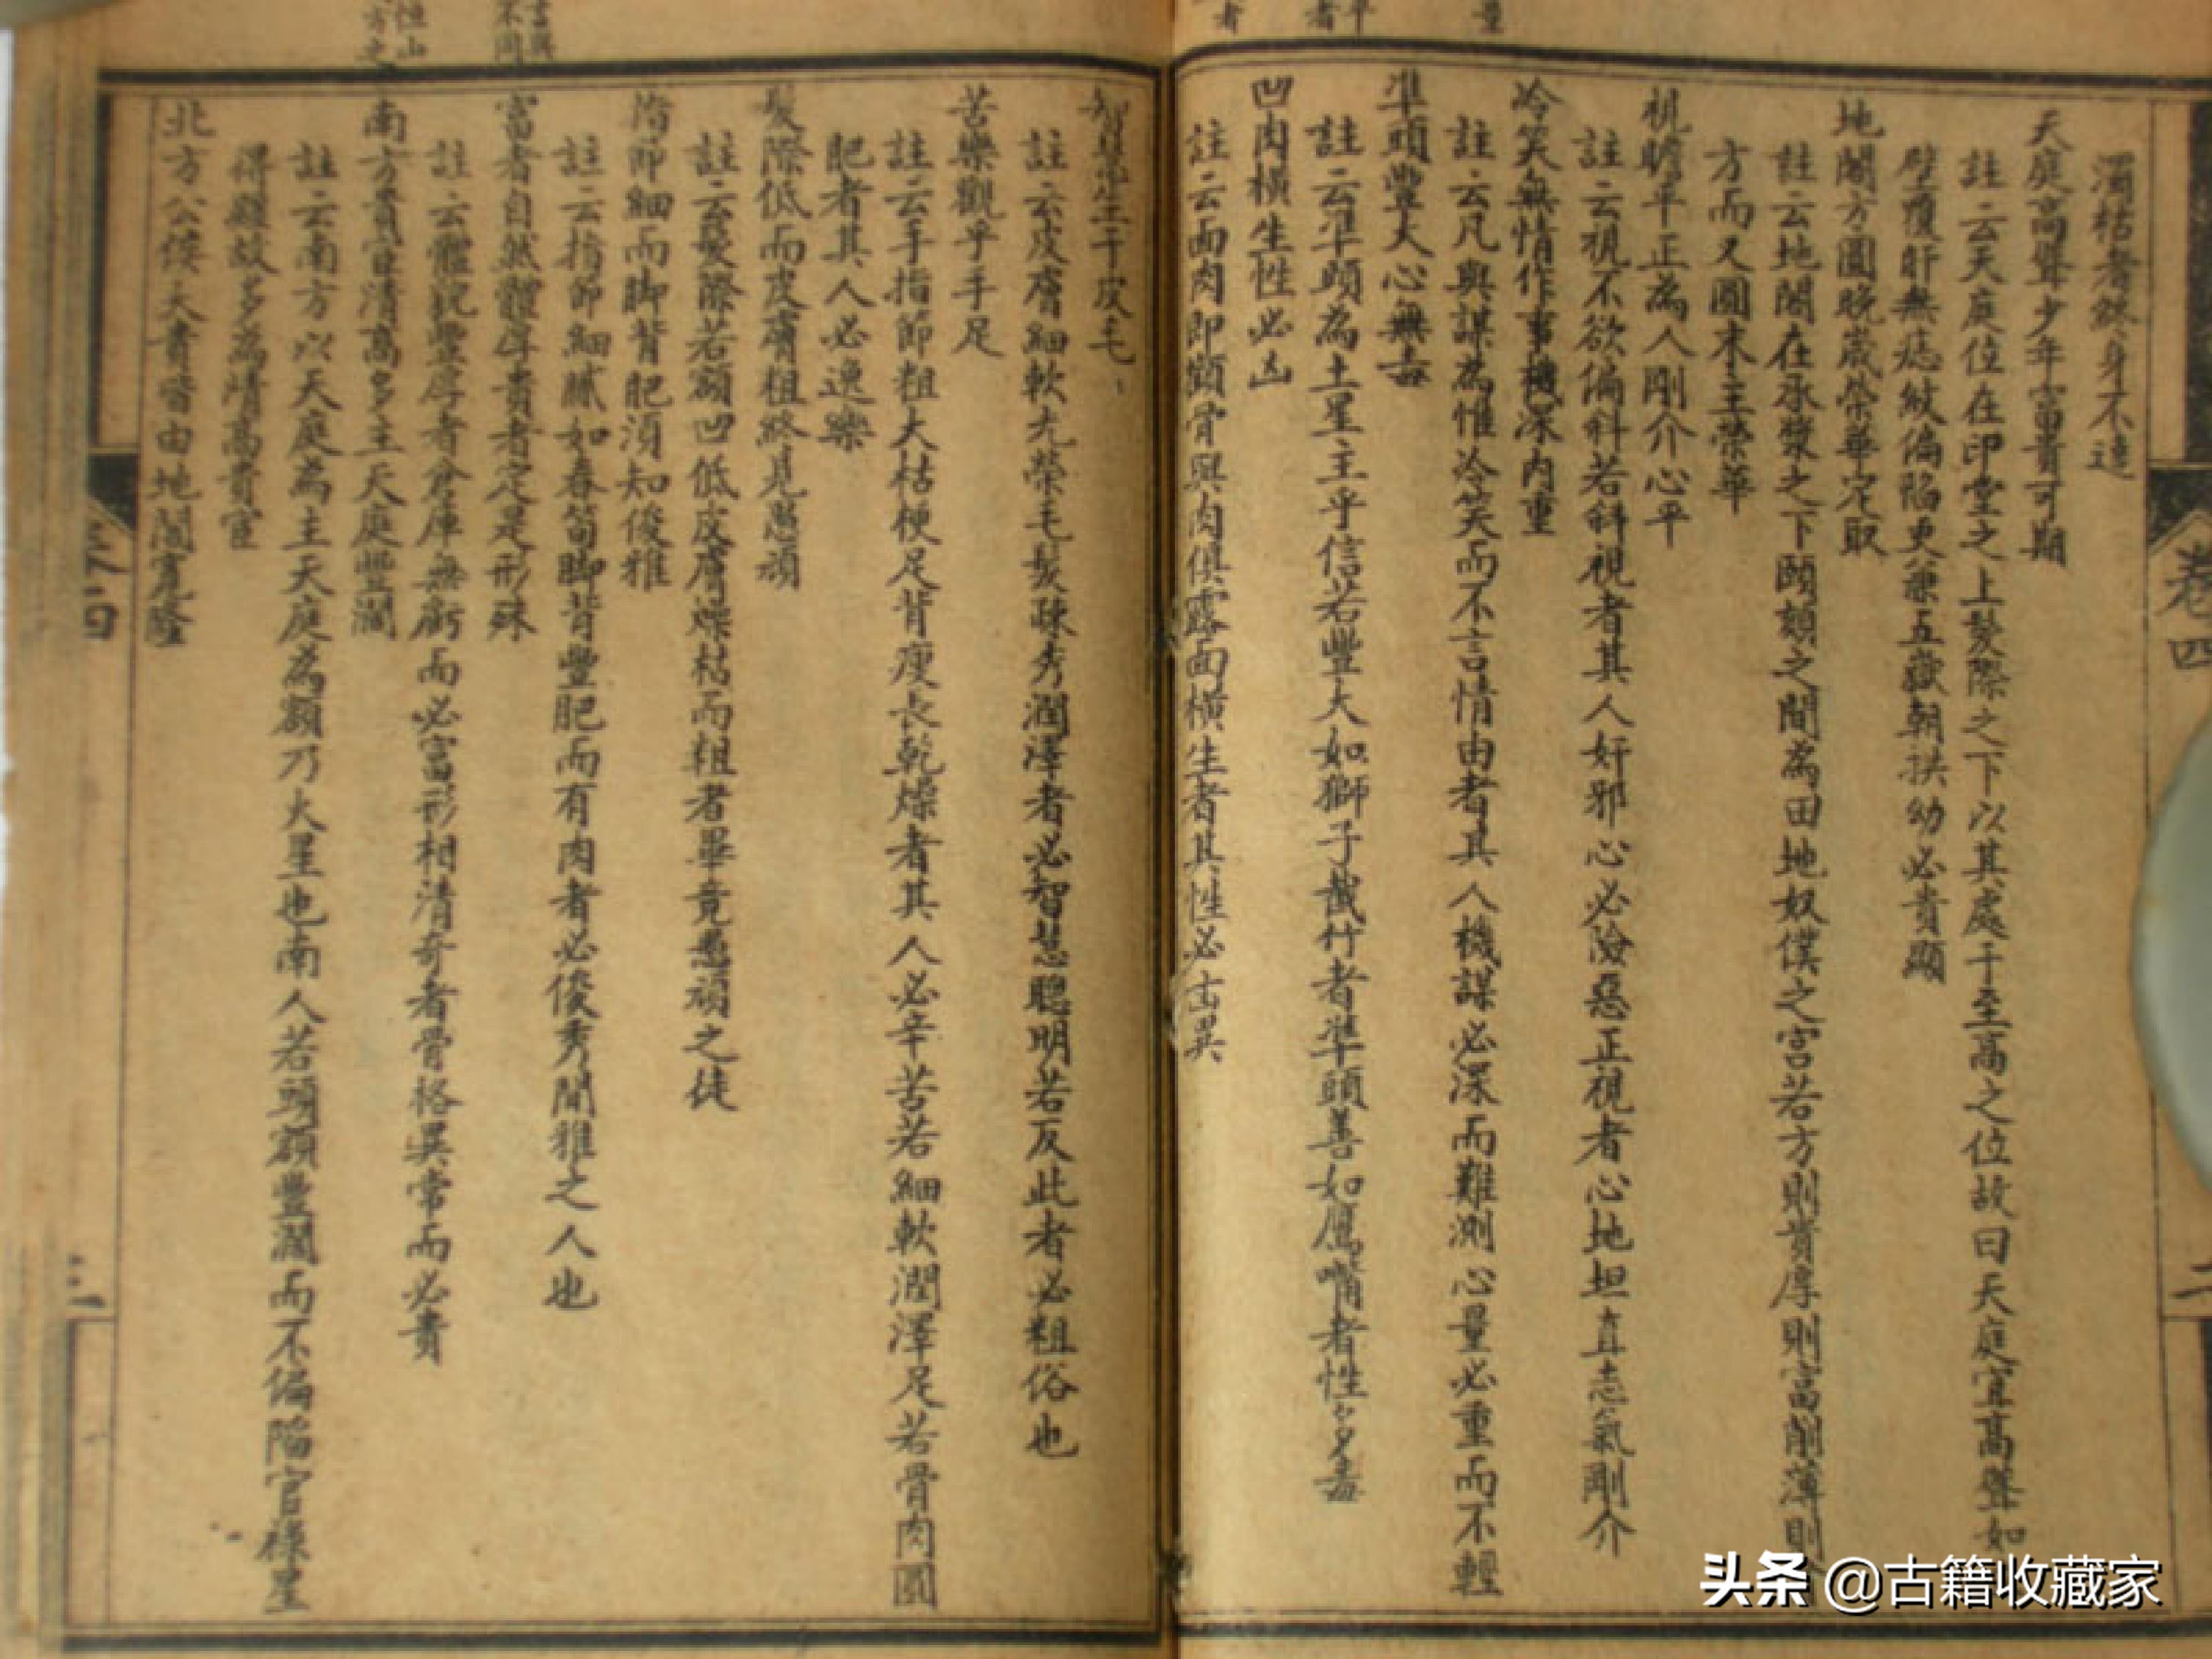 濁枯者終身不達
天庭高聳少年富貴可期
註云天庭位在印堂之上髮際之下以其處于至高之位故曰天庭宜高聳如
壁覆肝無痣紋偏陷更兼五嶽朝拱幼必貴顯
地閣方圓晚歲榮華定取
註云地閣在承漿之下頤頦之間為田地奴僕之宮若方則貴厚則富削薄則
方而又圓末主榮華
視瞻平正為人剛介心平
註云視不欲偏科若科視者其人奸邪心必險惡正視者心地坦直志氣剛介
冷笑無情作事機深內重
註云凡與謀為惟冷笑而不言情由者其人機謀必深而難測心量必重而不輕
準頭豐大心無毒
註云準頭為土星主乎信若豐大如獅子截竹者準頭善如鷹嘴者性必多毒
凹肉橫生性必凶
註云面肉即顴骨與肉俱露面橫生者其性必古異
智慧生于皮毛
註云皮膚細軟光榮毛髮疎秀潤澤者必智慧聰明若反此者必粗俗也
苦樂觀乎手足
註云手指節粗大枯梗足背瘦長乾燥者其人必辛苦若細軟潤澤足若骨肉圓
肥者其人必逸樂
髮際低而皮膚粗終見愚頑
註云髮際若額凹低皮膚燥枯而粗者畢竟愚頑之徒
指節細而脚背肥須知俊雅
註云指節細膩如春筍脚背豐肥而有肉者必俊秀閒雅之人也
富者自然體厚貴者定是形殊
註云體貌豐厚者倉庫無虧而必富形相清奇者骨格異常而必貴
南方貴宦清高多主天庭豐濶
註云南方以天庭為主天庭為額乃火星也南人若頭額豐濶而不偏陷官祿星
得躔故多為清高貴宦
北方公侯大貴皆由地閣寬隆
卷四
二
卷四
三
頭条 @古籍收藏家